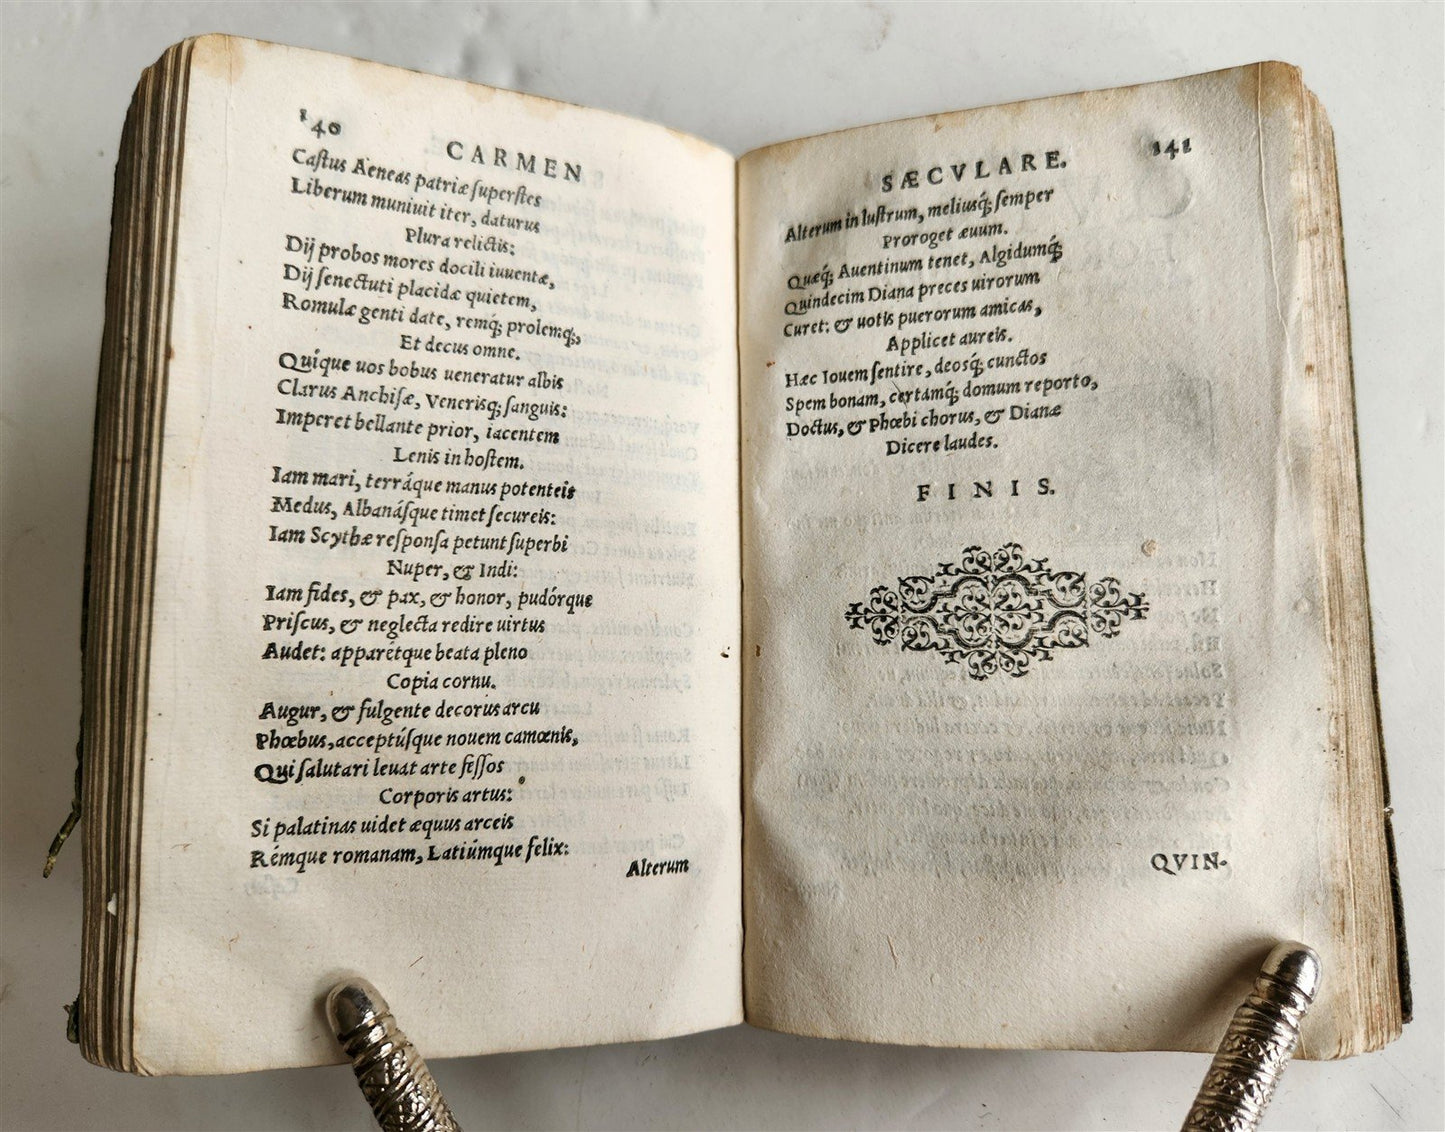 140
CARMEN
Castus Aeneas patriæ superstes
Liberum muniuit iter, daturus
Plura relictis:
Dij probos mores docili iuuentæ,
Dij senectuti placidæ quietem,
Romulæ genti date, remq́; prolemq́;,
Et decus omne.
Quique uos bobus ueneratur albis
Clarus Anchisæ, Venerisq́; sanguis:
Imperet bellante prior, iacentem
Lenis in hostem.
Iam mari, terráque manus potenteis
Medus, Albanásque timet secureis:
Iam Scythæ responsa petunt superbi
Nuper, & Indi:
Iam fides, & pax, & honor, pudórque
Priscus, & neglecta redire uirtus
Audet: apparetque beata pleno
Copia cornu.
Augur, & fulgente decorus arcu
Phœbus, acceptúsque nouem camœnis,
Qui salutari leuat arte fessos
Corporis artus:
Si palatinas uidet æquus arceis
Rémque romanam, Latiúmque felix:
Alterum
SÆCVLARE.
141
Alterum in lustrum, meliusq́; semper
Proroget æuum.
Quæq́; Auentinum tenet, Algidumq́;
Quindecim Diana preces uirorum
Curet: & uotis puerorum amicas,
Applicet aureis.
Hæc Iouem sentire, deosq́; cunctos
Spem bonam, certamq́; domum reporto,
Doctus, & Phœbi chorus, & Dianæ
Dicere laudes.
FINIS.
QVIN-